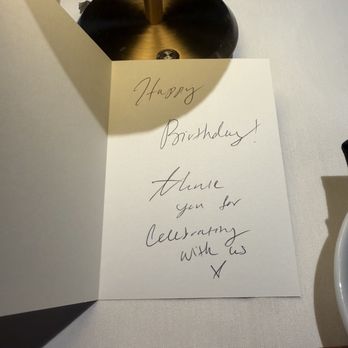 Happy
Birthday!
thank
you for
Celebrating
with us
X